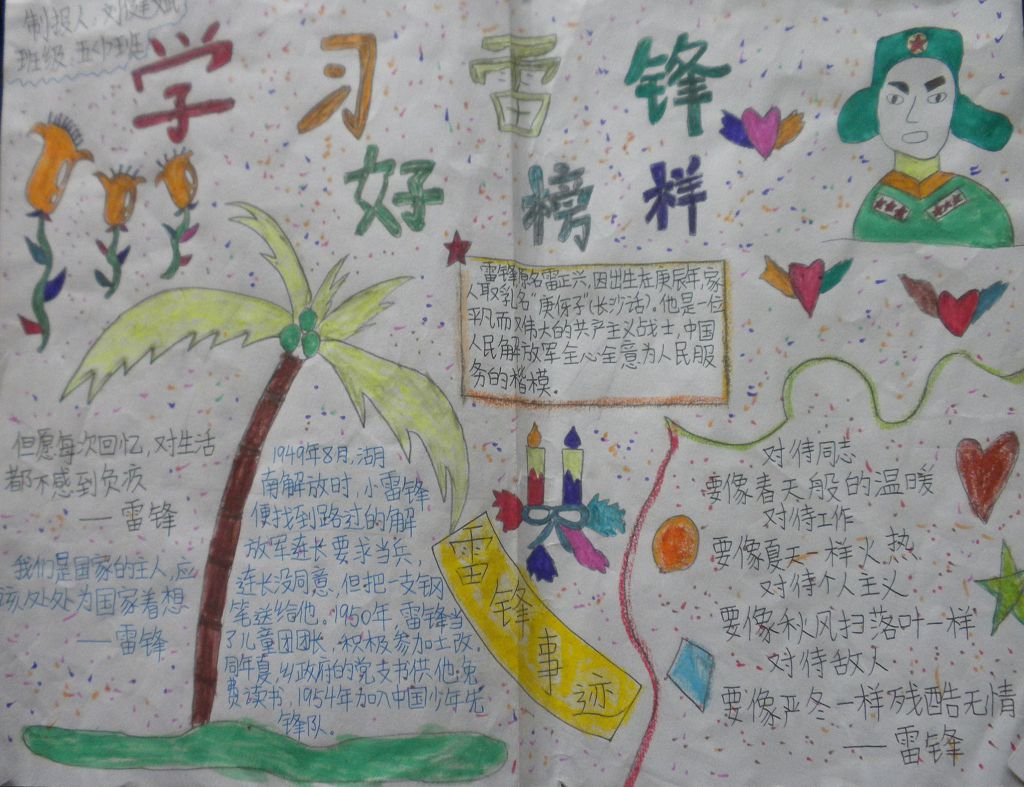 制报人:刘健斌
班级:五(1)班
学习雷锋
好榜样
雷锋原名雷正兴,因出生在庚辰年,家
人取乳名“庚伢子”(长沙话)。他是一位
平凡而又伟大的共产主义战士,中国
人民解放军全心全意为人民服
务的楷模。
但愿每次回忆,对生活
都不感到负疚
——雷锋
我们是国家的主人,应
该处处为国家着想
——雷锋
1949年8月,湖
南解放时,小雷锋
便找到路过的解
放军连长要求当兵,
连长没同意,但把一支钢
笔送给他。1950年,雷锋当
了儿童团团长,积极参加土改,
同年夏,乡政府的党支书供他免
费读书,1954年加入中国少年先
锋队。
雷锋事迹
对待同志
要像春天般的温暖
对待工作
要像夏天一样火热
对待个人主义
要像秋风扫落叶一样
对待敌人
要像严冬一样残酷无情
——雷锋